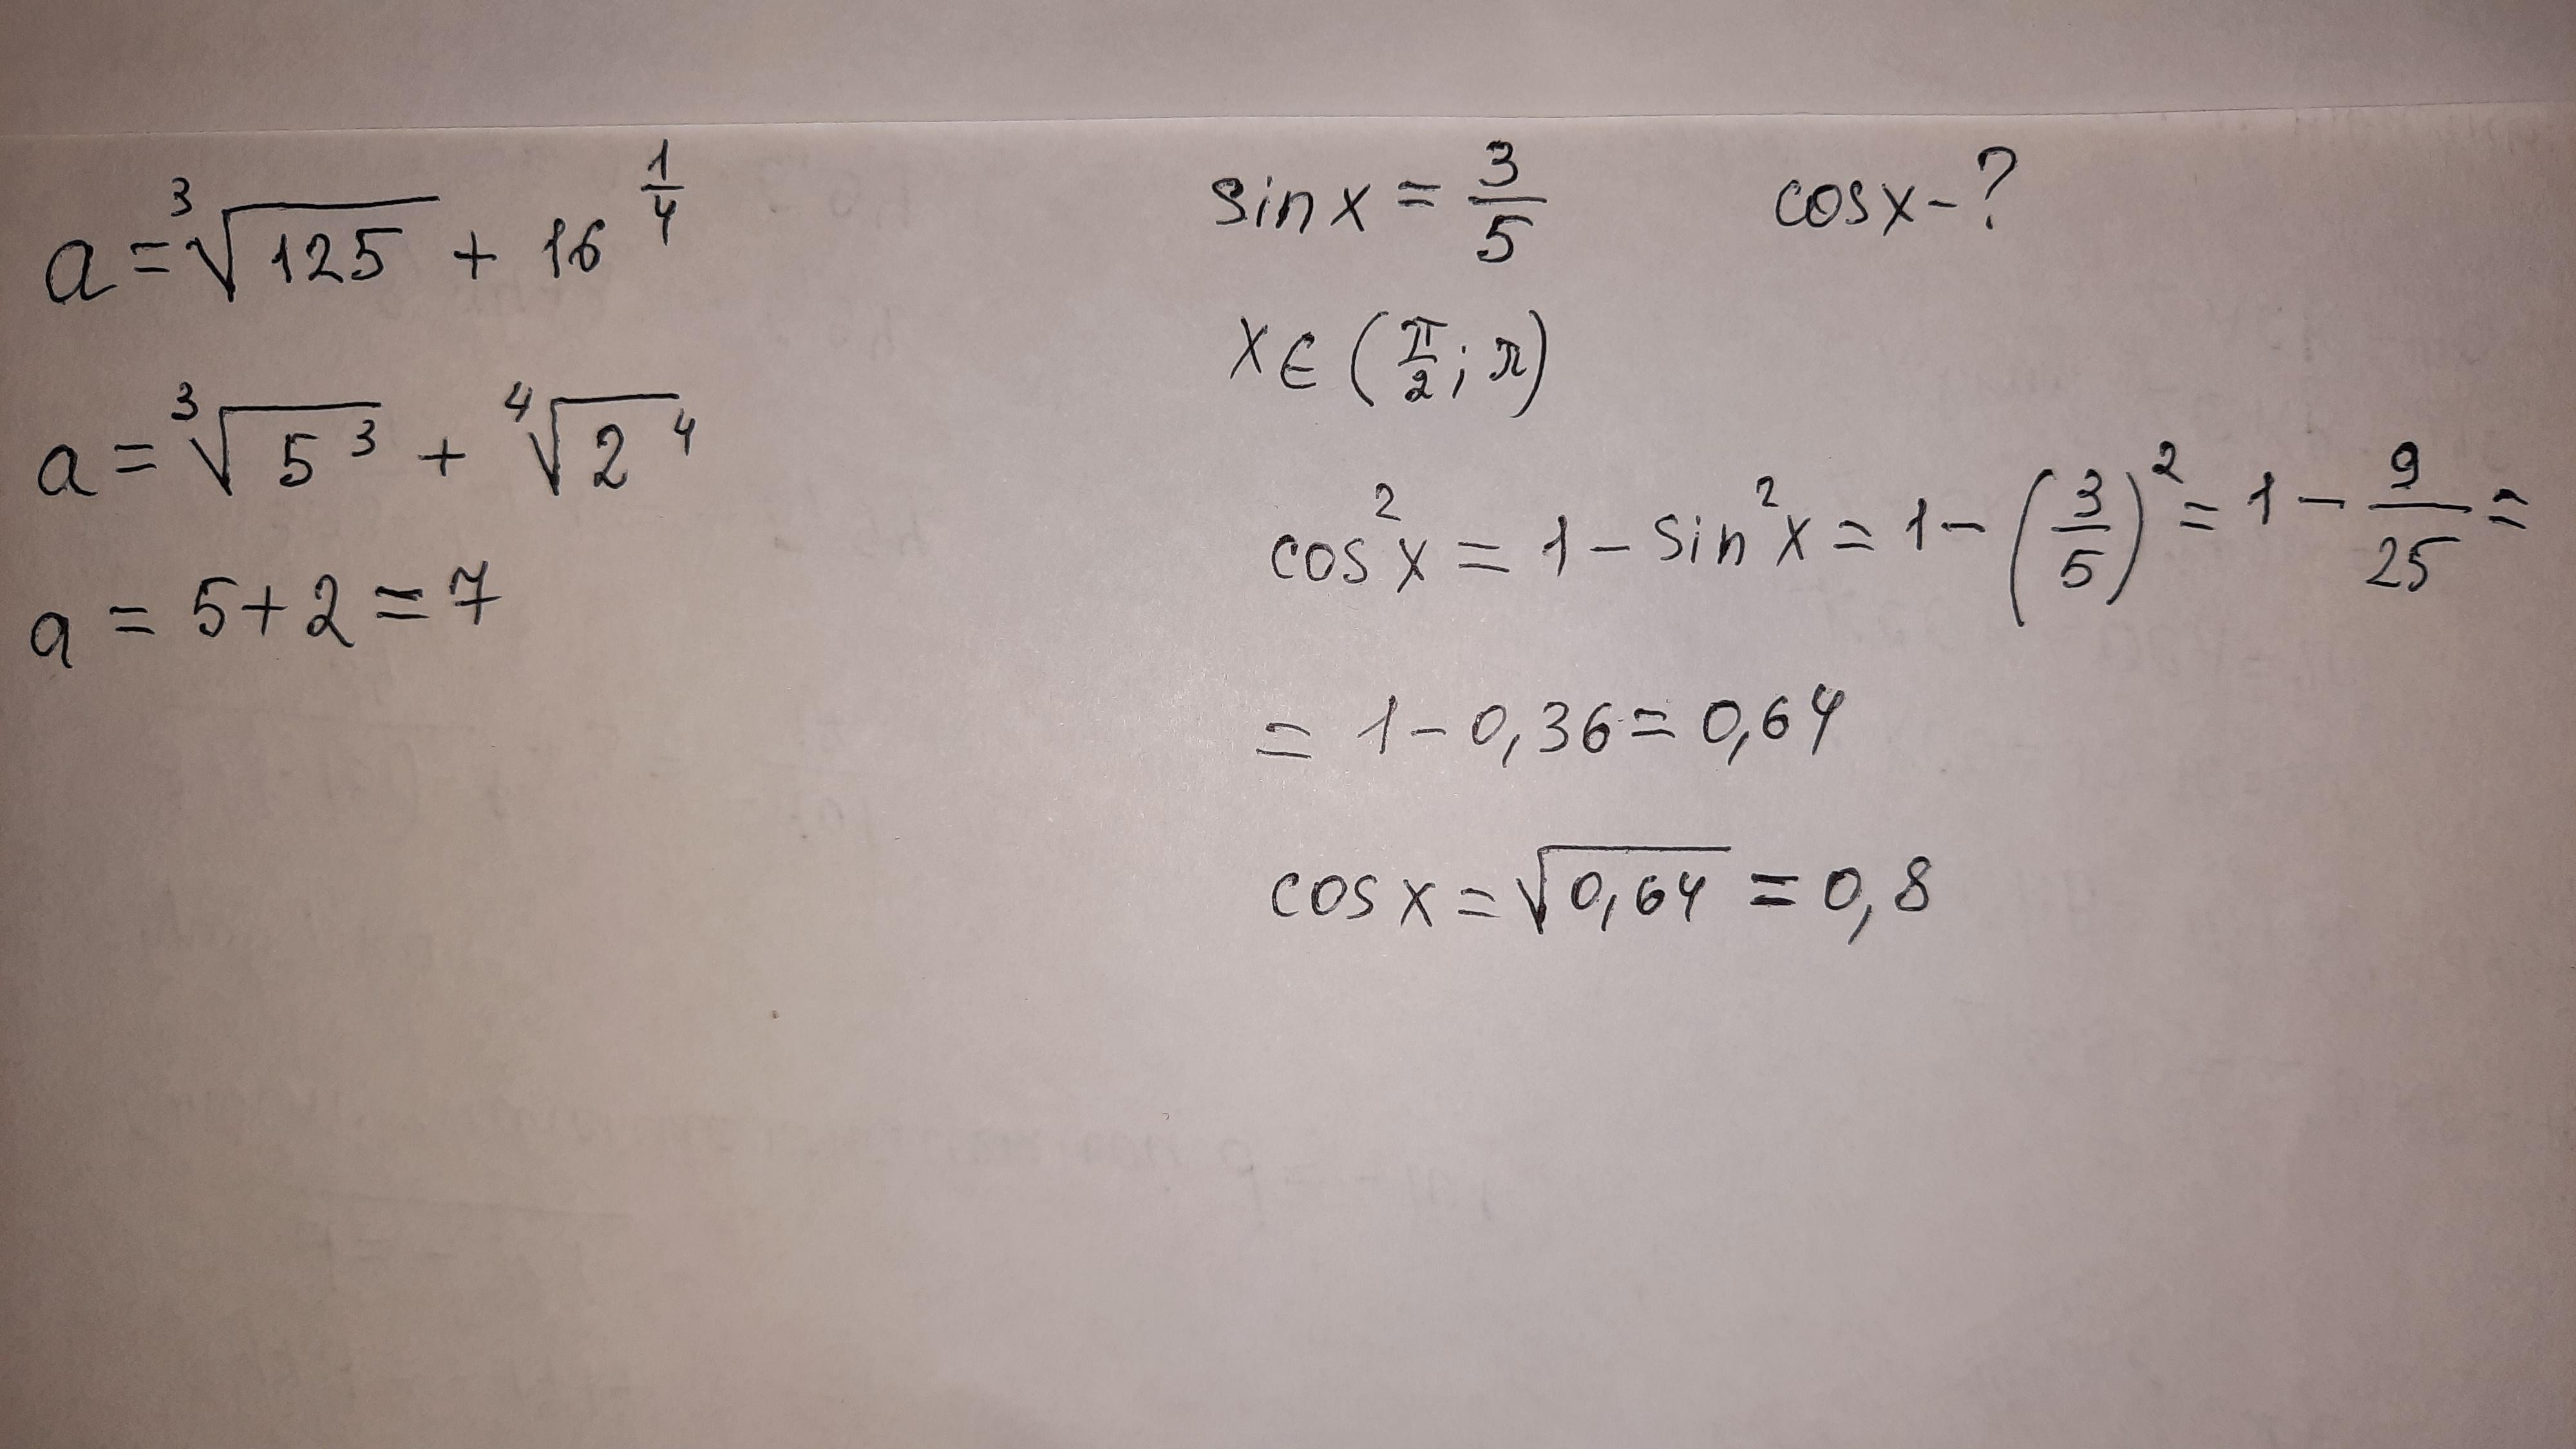 a = ∛125 + 16^(1/4)
a = ∛5³ + ∜2⁴
a = 5+2 = 7
sin x = 3/5 cos x - ?
x ∈ (π/2; π)
cos²x = 1 - sin²x = 1 - (3/5)² = 1 - 9/25 =
= 1 - 0,36 = 0,64
cos x = √0,64 = 0,8